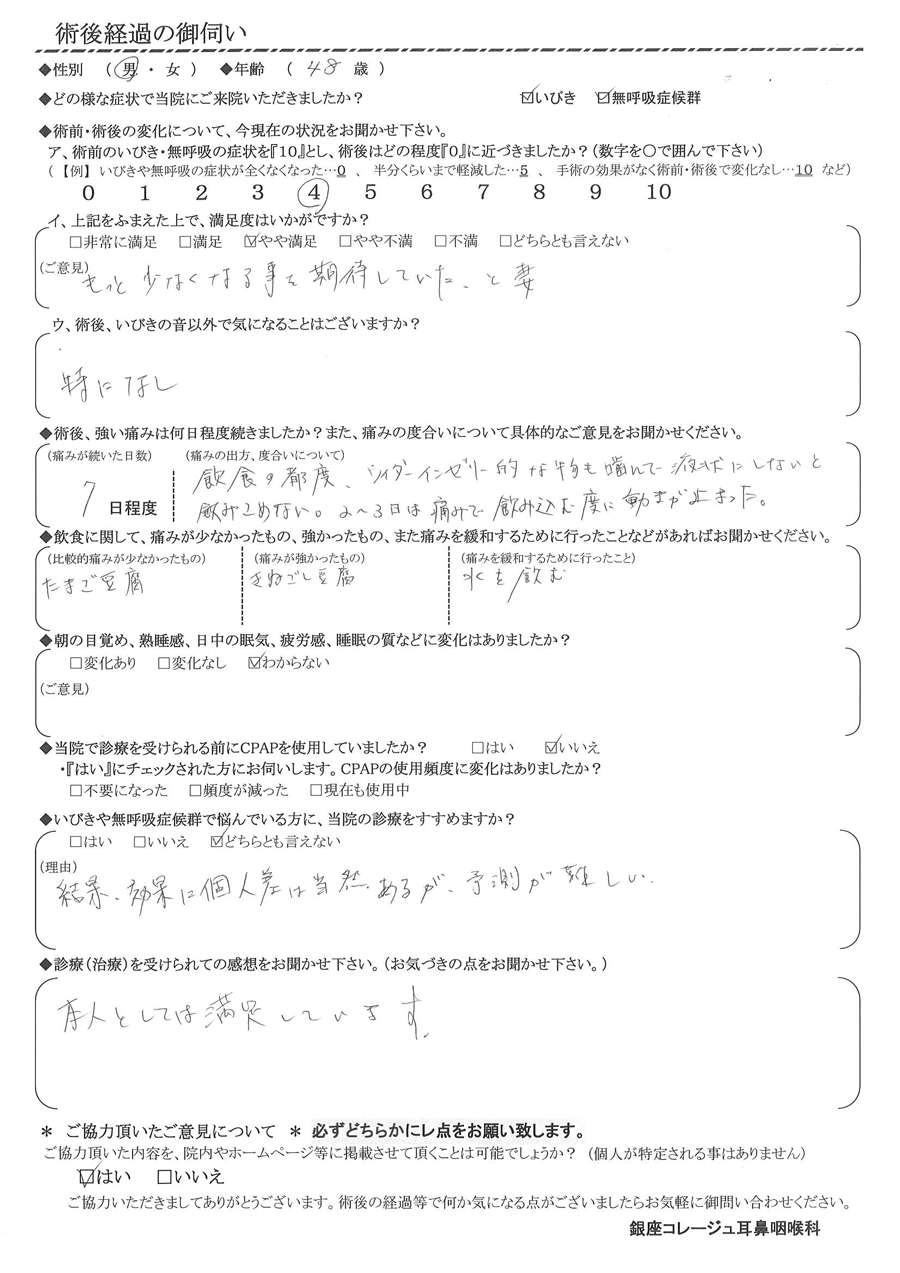 術後経過の御伺い
◆性別 ( 男 ・ 女 ) ◆年齢 ( 48 歳 )
◆どの様な症状で当院にご来院いただきましたか? ☑いびき ☑無呼吸症候群
◆術前・術後の変化について、今現在の状況をお聞かせ下さい。
ア、術前のいびき・無呼吸の症状を『10』とし、術後はどの程度『0』に近づきましたか?(数字を〇で囲んで下さい)
(【例】 いびきや無呼吸の症状が全くなくなった…0 、 半分くらいまで軽減した…5 、 手術の効果がなく術前・術後で変化なし…10 など)
0 1 2 3 4 5 6 7 8 9 10
イ、上記をふまえた上で、満足度はいかがですか?
□非常に満足 □満足 ☑やや満足 □やや不満 □不満 □どちらとも言えない
(ご意見)
もっと少なくなる事を期待していた、と妻
ウ、術後、いびきの音以外で気になることはございますか?
特になし
◆術後、強い痛みは何日程度続きましたか?また、痛みの度合いについて具体的なご意見をお聞かせください。
(痛みが続いた日数) (痛みの出方、度合いについて)
7 日程度
飲食の都度、ウイダーインゼリー的な物も噛んで液状にしないと
飲みこめない。2〜3日は痛みで飲み込む度に動きが止まった。
◆飲食に関して、痛みが少なかったもの、強かったもの、また痛みを緩和するために行ったことなどがあればお聞かせください。
(比較的痛みが少なかったもの) (痛みが強かったもの) (痛みを緩和するために行ったこと)
たまご豆腐 きぬごし豆腐 水を飲む
◆朝の目覚め、熟睡感、日中の眠気、疲労感、睡眠の質などに変化はありましたか?
□変化あり □変化なし ☑わからない
(ご意見)
◆当院で診療を受けられる前にCPAPを使用していましたか? □はい ☑いいえ
・『はい』にチェックされた方にお伺いします。CPAPの使用頻度に変化はありましたか?
□不要になった □頻度が減った □現在も使用中
◆いびきや無呼吸症候群で悩んでいる方に、当院の診療をすすめますか?
□はい □いいえ ☑どちらとも言えない
(理由)
結果、効果に個人差は当然、あるが、予測が難しい。
◆診療(治療)を受けられての感想をお聞かせ下さい。(お気づきの点をお聞かせ下さい。)
本人としては満足しています。
＊ ご協力頂いたご意見について ＊ 必ずどちらかにレ点をお願い致します。
ご協力頂いた内容を、院内やホームページ等に掲載させて頂くことは可能でしょうか? (個人が特定される事はありません)
☑はい □いいえ
ご協力いただきましてありがとうございます。術後の経過等で何か気になる点がございましたらお気軽に御問い合わせください。
銀座コレージュ耳鼻咽喉科